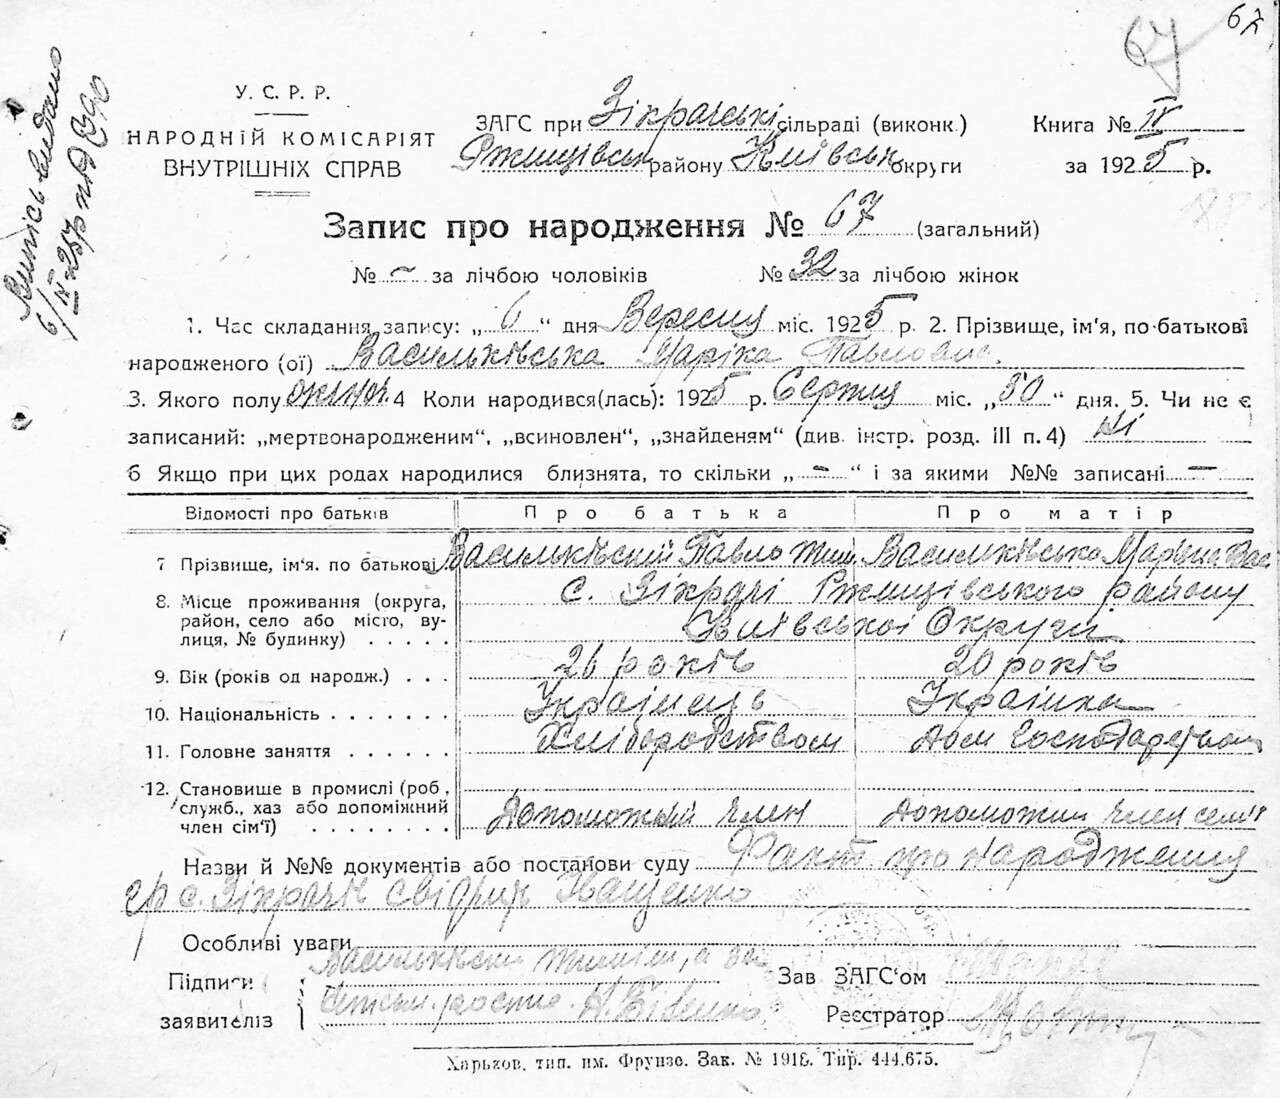 67
67
У. С. Р. Р.
НАРОДНІЙ КОМІСАРІЯТ
ВНУТРІШНІХ СПРАВ
ЗАГС при Зікрачські сільраді (виконк.)
Ржищівськ району Київськ округи
Книга № ІІ
за 1925 р.
Запис про народження № 67 (загальний)
№ – за лічбою чоловіків № 32 за лічбою жінок
1. Час складання запису: „ 6 “ дня Вересня міс. 1925 р. 2. Прізвище, ім'я, по-батькові
народженого (ої) Васильківська Маріка Павловна
3. Якого полу жіноч. 4 Коли народився(лась): 1925 р. Серпня міс. „30“ дня. 5. Чи не є
записаний: „мертвонародженим“, „всиновлен“, „знайденям“ (див. інстр. розд. III п. 4) Ні
6 Якщо при цих родах народилися близнята, то скільки „ – “ і за якими №№ записані –
Відомості про батьків Про батька Про матір
7 Прізвище, ім'я. по батькові Васильківский Павло Васильківська
8. Місце проживання (округа, с. Зікрачі Ржищівського району
район, село або місто, ву-
лиця, № будинку) . . . . . Київської Округи
9. Вік (років од народж.) . . . 26 років 20 років
10. Національність . . . . . . . Українець Українка
11. Головне заняття . . . . . . Хліборобством Дом Господарством
12. Становище в промислі (роб,
служб., хаз або допоміжний
член сім'ї) . . . . . . . . Допоможний член Допоможний член семї
Назви й №№ документів або постанови суду Факт про народження
гр с. Зікрачів свідчить Іващенко
Особливі уваги
Підписи Васильківськи
заявителів
Зав ЗАГС'ом
Реєстратор
Харьков, тип. им. Фрунзе. Зак. № 1918. Тир. 444.675.